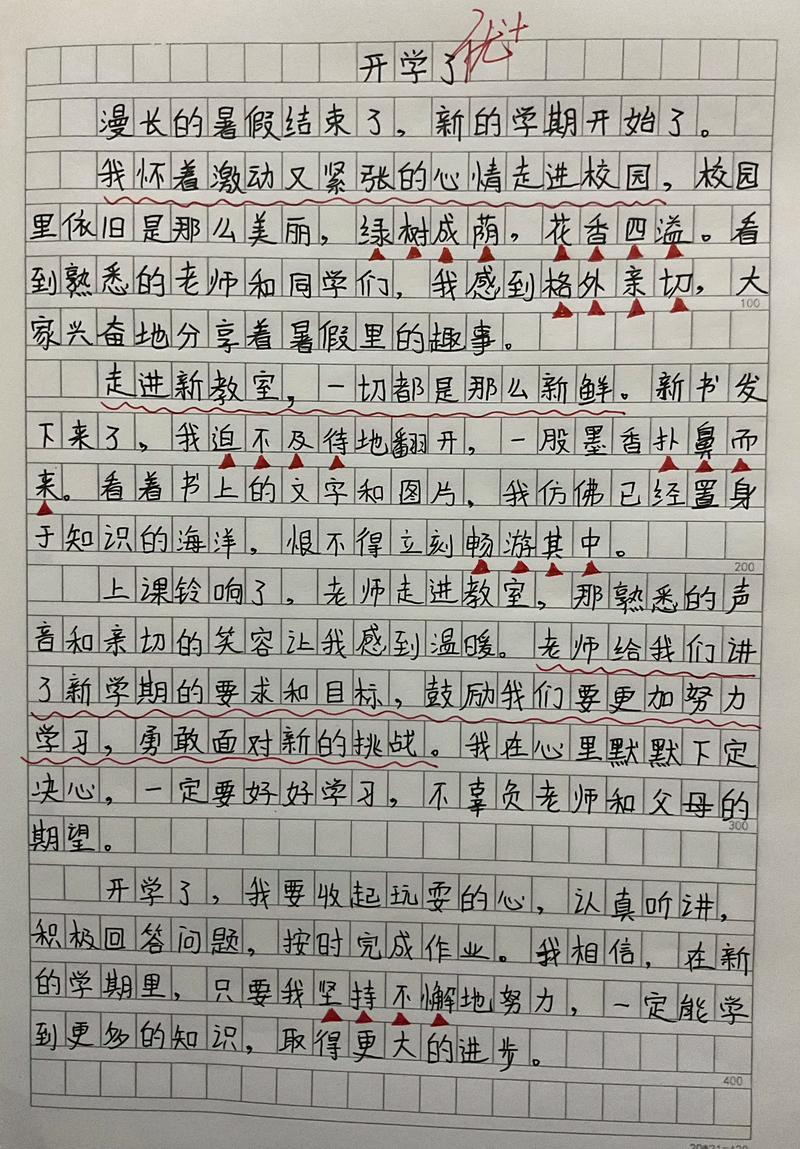 开学了 优+
漫长的暑假结束了，新的学期开始了。
我怀着激动又紧张的心情走进校园，校园
里依旧是那么美丽，绿树成荫，花香四溢。看
到熟悉的老师和同学们，我感到格外亲切，大
100
家兴奋地分享着暑假里的趣事。
走进新教室，一切都是那么新鲜。新书发
下来了，我迫不及待地翻开，一股墨香扑鼻而
来。看着书上的文字和图片，我仿佛已经置身
于知识的海洋，恨不得立刻畅游其中。
200
上课铃响了，老师走进教室，那熟悉的声
音和亲切的笑容让我感到温暖。老师给我们讲
了新学期的要求和目标，鼓励我们要更加努力
学习，勇敢面对新的挑战。我在心里默默下定
决心，一定要好好学习，不辜负老师和父母的
300
期望。
开学了，我要收起玩耍的心，认真听讲，
积极回答问题，按时完成作业。我相信，在新
的学期里，只要我坚持不懈地努力，一定能学
到更多的知识，取得更大的进步。
400